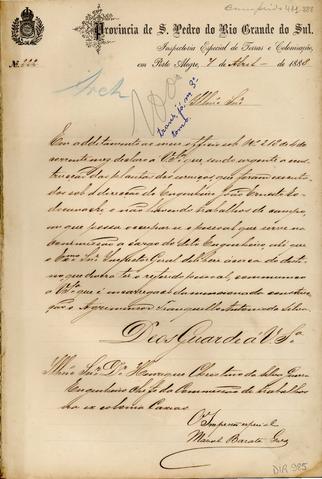 Comprido 411.388
Provincia de S. Pedro do Rio Grande do Sul.
Inspectoria Especial de Terras e Colonização,
em Porto Alegre, 7 de Abril de 1888
Nº 222
Arch
Illmo Snr
Em additamento ao meu officio sob Nº 212 de 6 do
corrente mez, declaro a V.Sª que, sendo urgente a
das plantas dos serviços que foram
dos sob a direcção do Engenheiro João Ernesto
e não havendo trabalhos de campo,
em que possa occupar o pessoal que serve na
commissão a cargo d'este Engenheiro, até que
o Exmo Snr Inspector Geral delibere ácerca do desti
no que deverá ter o referido pessoal, communico
a V.Sª que é encarregado da mencionada
o Agrimensor Tranquillo Antonio da Silva.
Deos Guarde a V. Sª
Illmo Snr Dr Henrique Christino da Silva
Engenheiro Chefe da Commissão de trabalhos
na ex colonia Caxias
O Inspector especial
Manoel Barata Góes
DIR 985